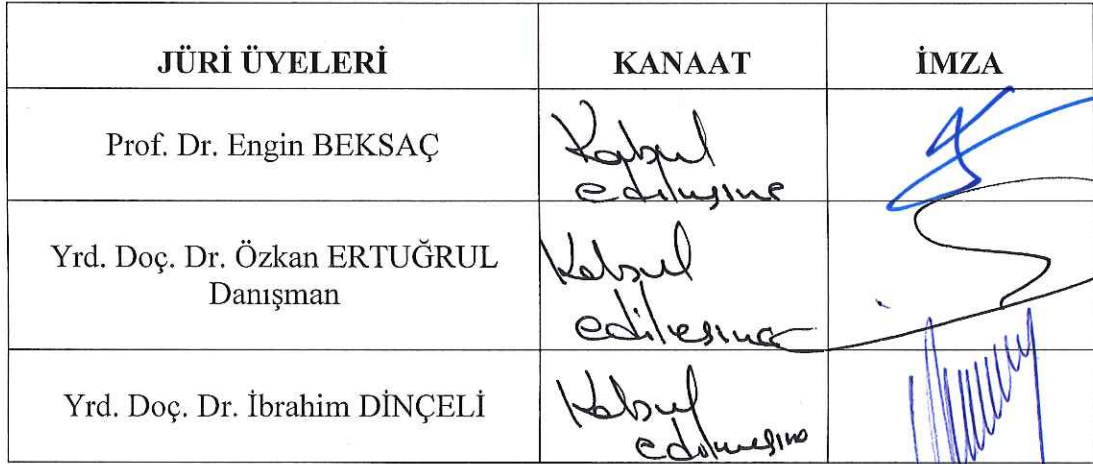 JÜRİ ÜYELERİ KANAAT İMZA
Prof. Dr. Engin BEKSAÇ Kabul
edilmesine
Yrd. Doç. Dr. Özkan ERTUĞRUL Kabul
Danışman edilmesine
Yrd. Doç. Dr. İbrahim DİNÇELİ Kabul
edilmesine